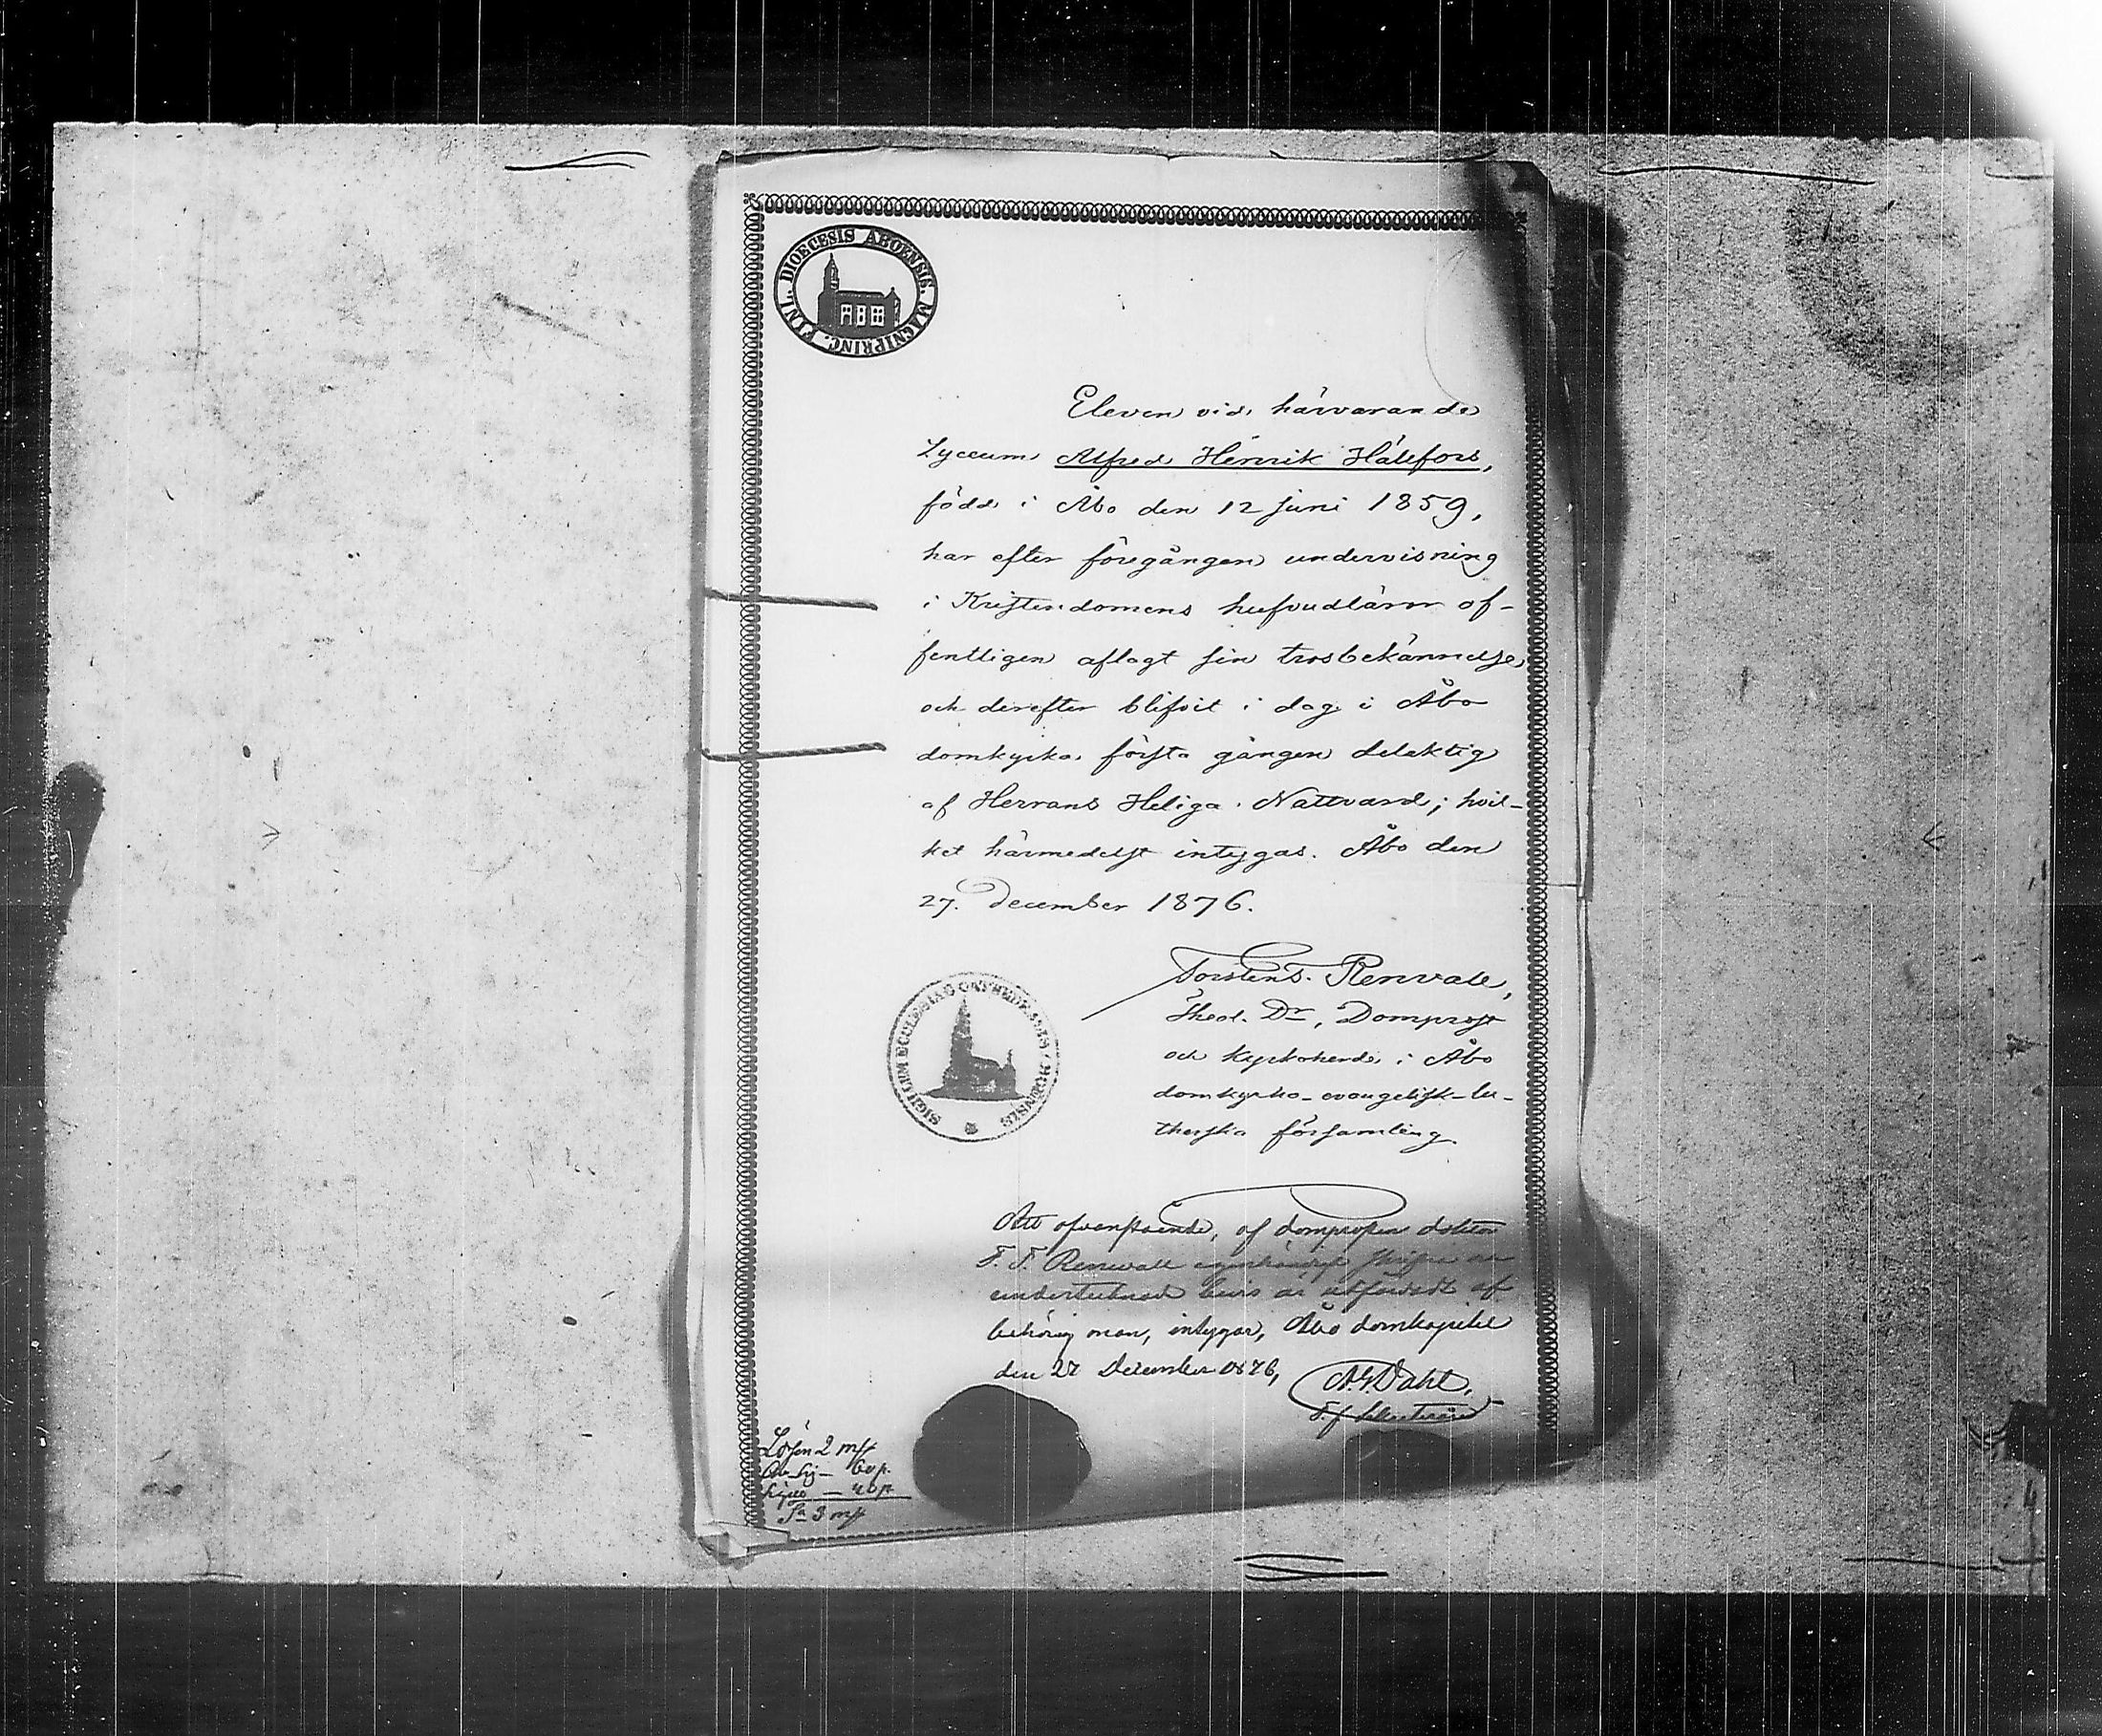 DIOECESIS ABOENSIS. MAGNIPRINC. FINL.
Eleven vid härvarande
Lyceum Alfred Henrik Hällfors,
född i Åbo den 12 Juni 1859,
har efter föregången undervisning
i Kristendomens hufvudläror of-
fentligen aflagt sin trosbekännelse
och derefter blifvit i dag i Åbo
domkyrka första gången delaktig
af Herrans Heliga Nattvard; hvil-
ket härmedelst intygas. Åbo den
27. December 1876.
Torsten T. Renvall,
Theol. Dr, Domprost
och kyrkoherde i Åbo
domkyrko-evangelisk-lu-
therska församling.
SIGILLUM ECCLESIAE CATHEDRALIS ABOENSIS
Att ofvanstående, af domprosten doktor
T. T. Renvall egenhändigt skrifne och
undertecknade bevis är utfärdadt af
behörig man, intygar, Åbo domkapitel
den 27 December 1876,
A. G. Dahl,
T. f. Sekreterare
Lösen 2 mk
60 p.
40 p.
Sa 3 mk